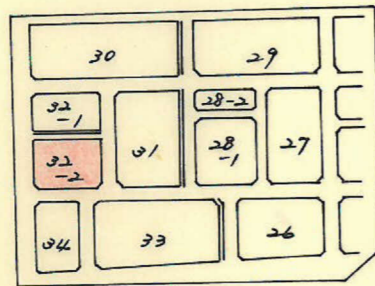 30
29
32
-1
28-2
31
28
-1
27
32
-2
34
33
26